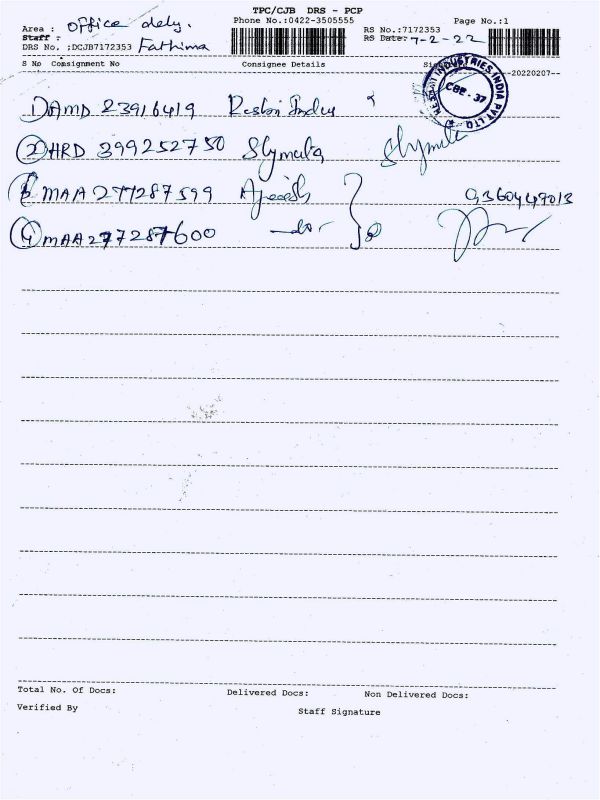 TPC/CJB DRS - PCP
Phone No.:0422-3505555
Page No.:1
Area : office dely.
RS No.:7172353
Staff :
RS Date: 7-2-22
DRS No. :DCJB7172353 Fathima
S No Consignment No Consignee Details
--20220207--
INDUSTRIES INDIA PVT. LTD
CBE - 37
1) AMD 23916419
2) HRD 399252750
3) MAA 277287599 9360449013
4) MAA 277287600 -do-
Total No. Of Docs: Delivered Docs: Non Delivered Docs:
Verified By Staff Signature